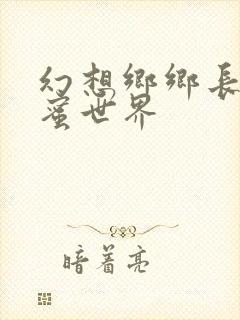 幻想鄉鄉長
蜜世界
暗着亮